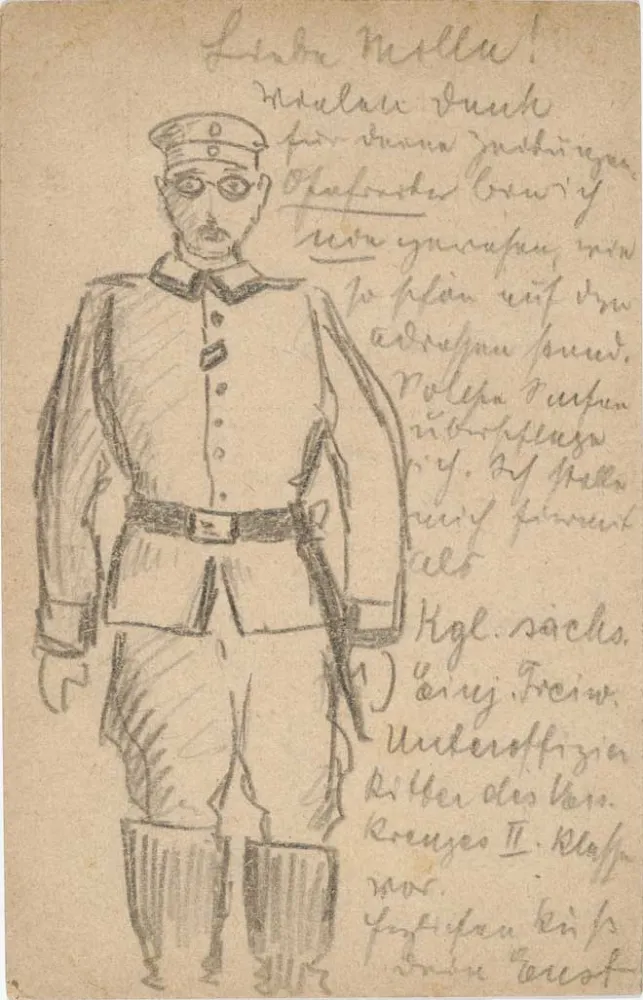 Liebe Molla!
Vielen Dank
für deine Zeitungen.
Gefreiter bin ich
nie gewesen, wie
so schön auf den
Adressen stand.
Solche Stufen
überspringe
ich. Ich stelle
mich hiermit
als
Kgl. sächs.
Einj. Freiw.
Unteroffizier
Ritter des
Kreuzes II. Klasse
vor.
Herzlichen Kuß
dein Ernst